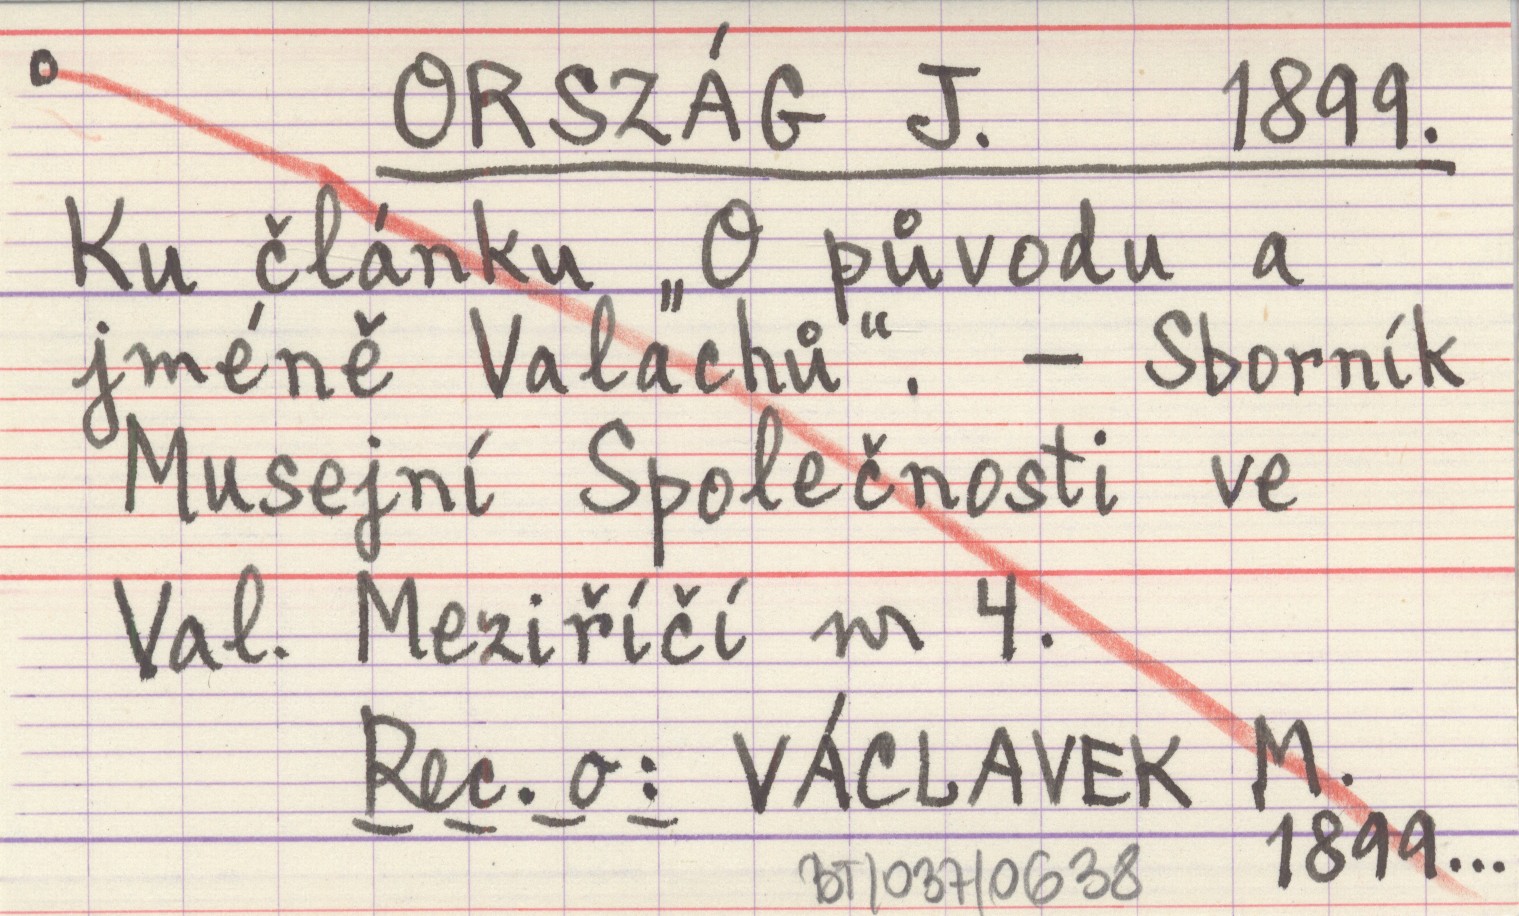 o ORSZÁG J. 1899.
Ku článku „O původu a
jméně Valachů“. – Sborník
Musejní Společnosti ve
Val. Meziříčí nr 4.
Rec. o: VÁCLAVEK M.
1899...
BT/037/0638